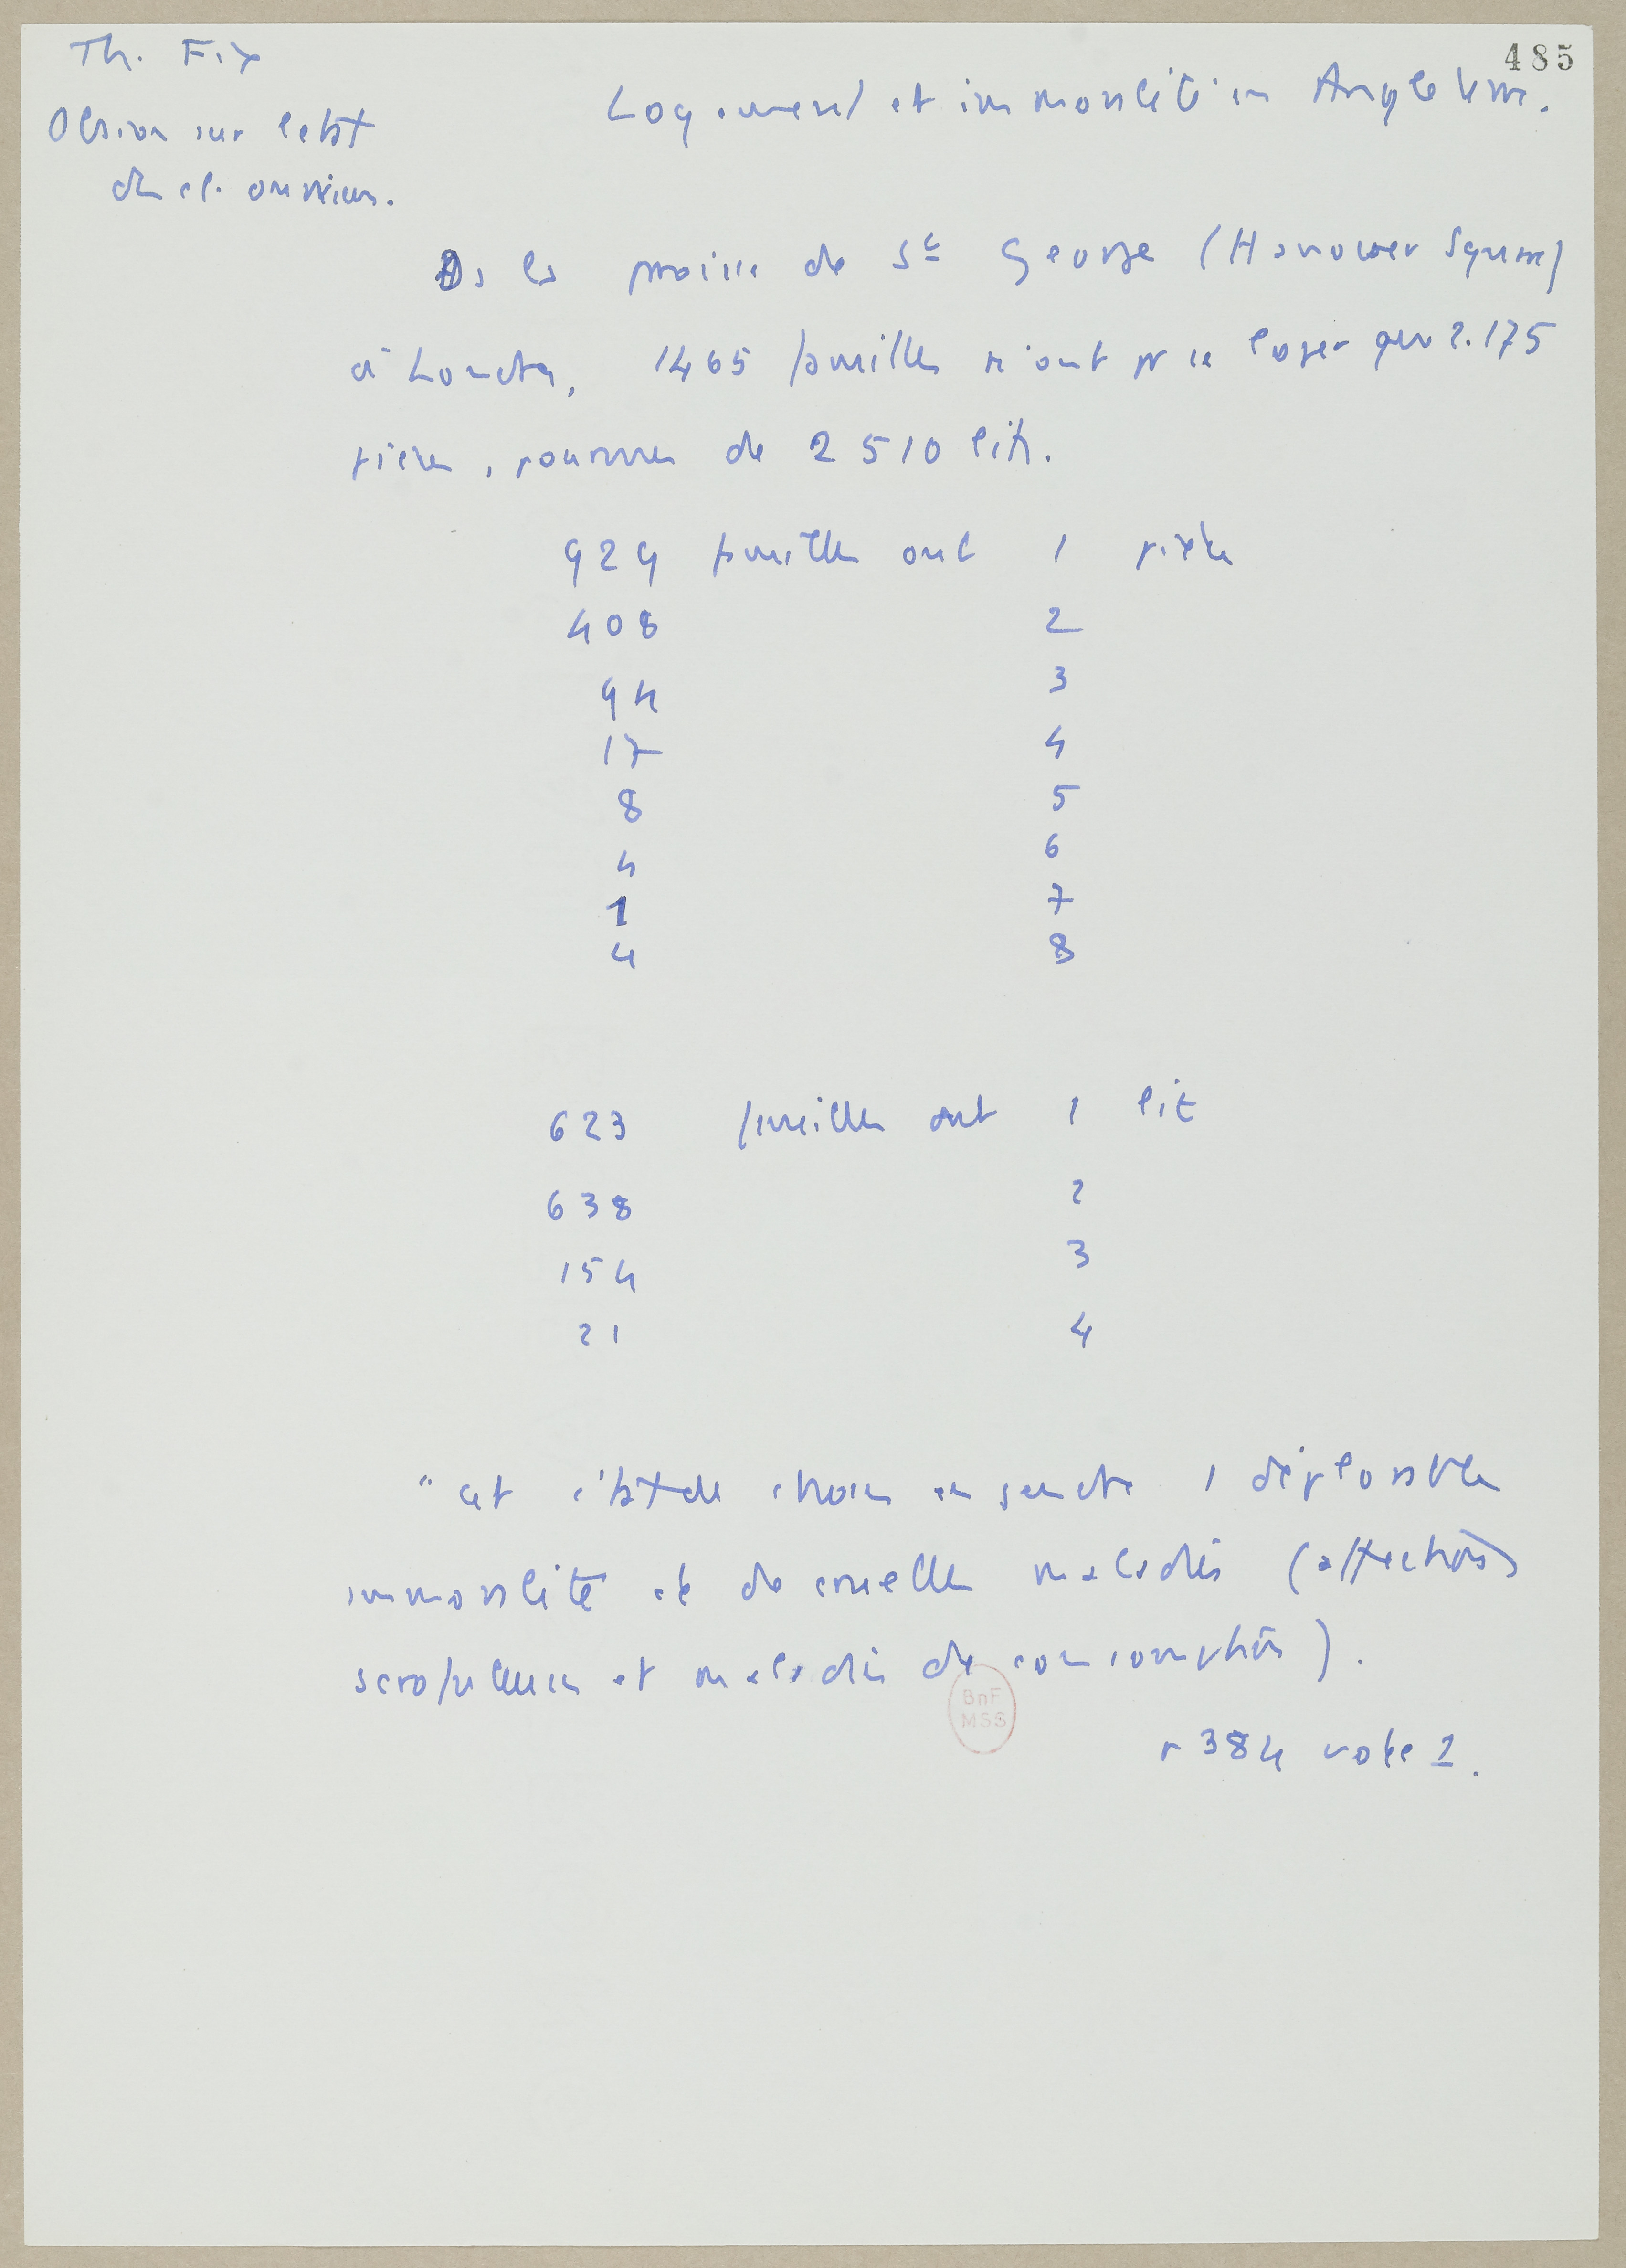 485
Th. Fix
Obsion sur l'etat
des cl. ouvrières.
Logement et immoralité en Angleterre.
Ds la paroisse de St George (Hanover Square)
à Londres, 1465 familles n'ont pr se loger que 2.175
pièces, pourvues de 2510 lits.
929 familles ont 1 pièce
408 2
94 3
17 4
8 5
4 6
1 7
4 8
623 familles ont 1 lit
638 2
154 3
21 4
"cet état de choses engendre 1 déplorable
immoralité et de cruelles maladies (affections
scrofuleuses et maladies de consomption).
p 384 note 1.
BnF
MSS